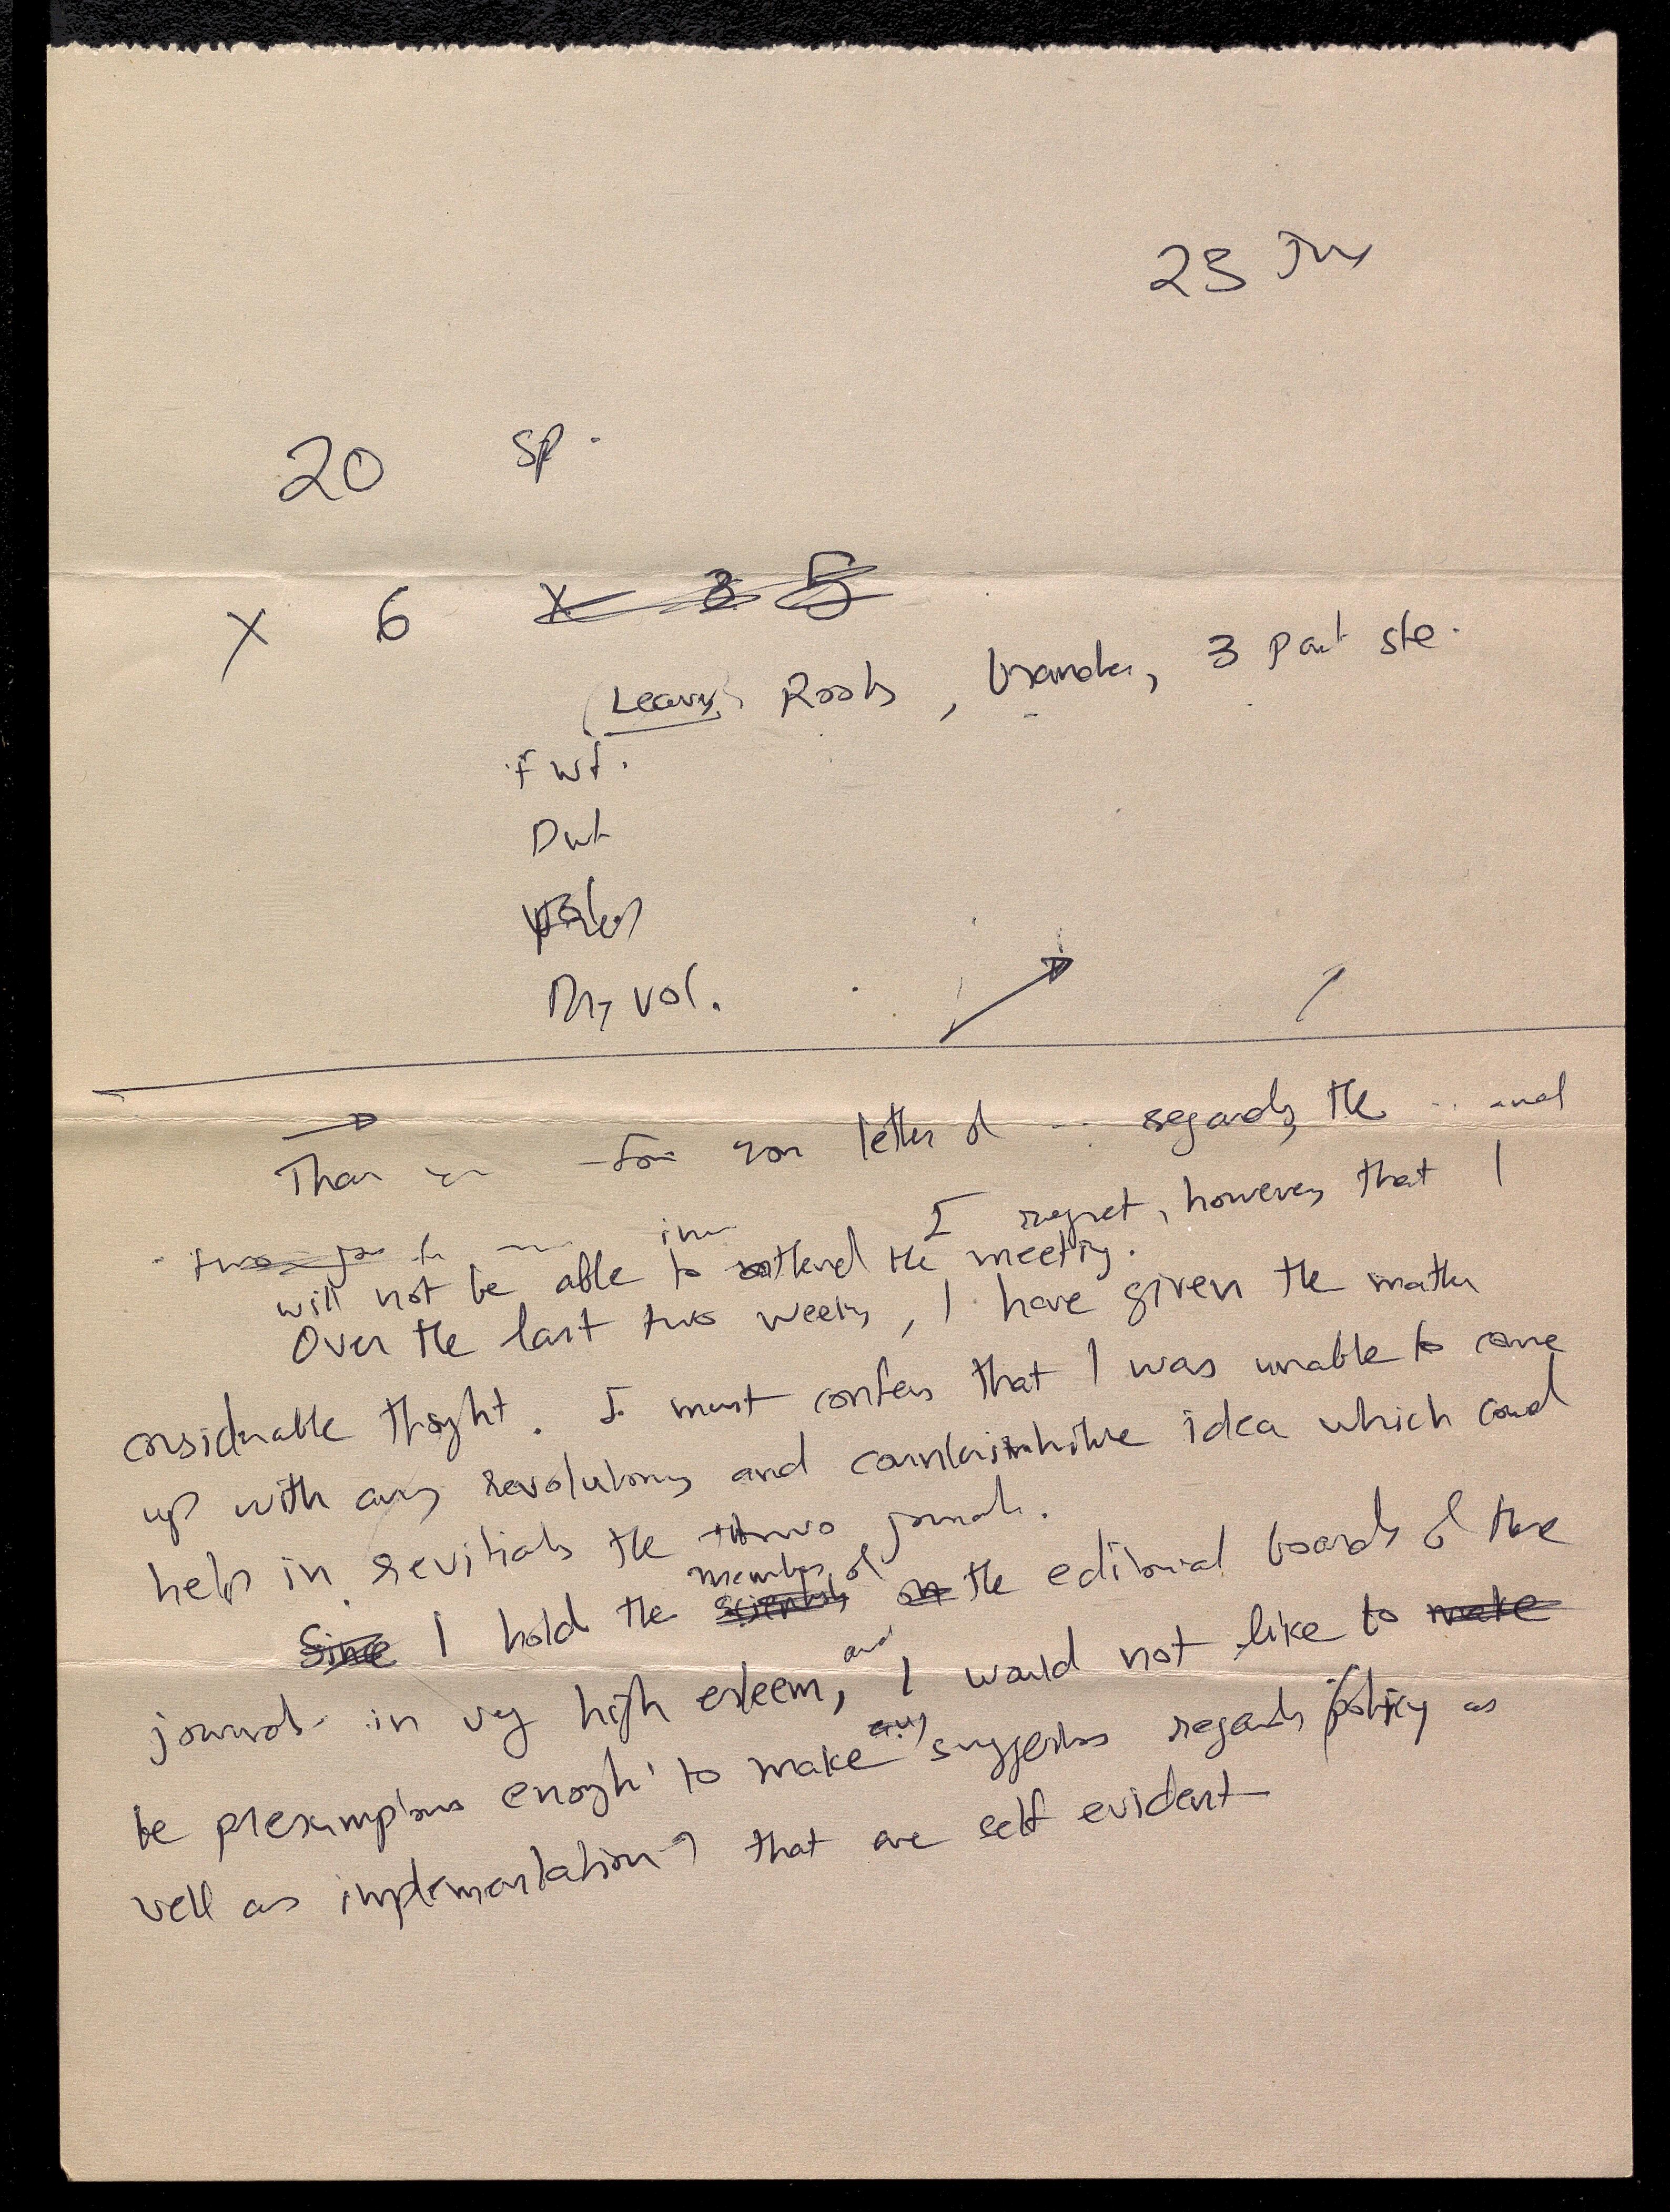 23
20 sp.
X 6 X 3 5
(Leaves) Roots, branches, 3 part ste.
F wt.
D wt
Dry vol.
for your letter of ... regards the ...
I regret, however, that I
will not be able to attend the meeting.
Over the last two weeks, I have given the matter
considerable thought. I must confess that I was unable to come
up with any revolutionary and counterintuitive idea which could
help in the two journals.
members of
Since I hold the scientists on the editorial boards of these
journals in very high esteem, and I would not like to make
be presumptuous enough to make any suggestions regards policy as
well as implementation, that are self evident